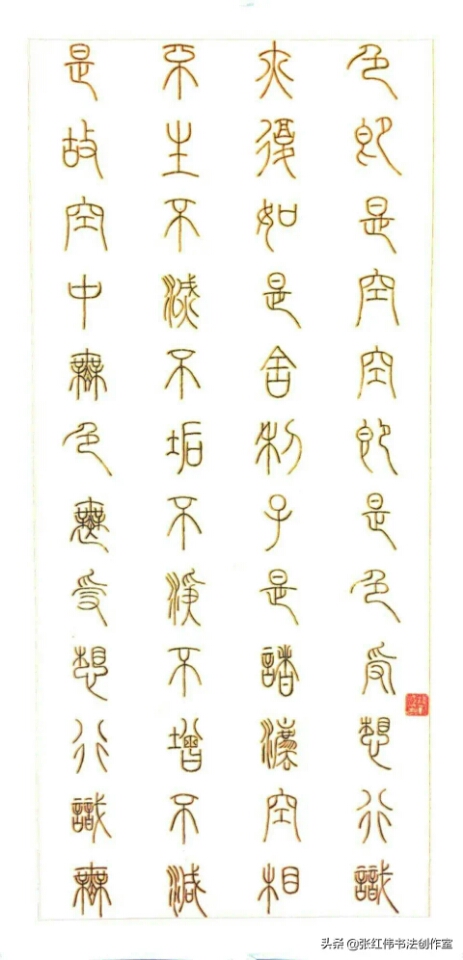 色即是空空即是色受想行識
亦復如是舍利子是諸灋空相
不生不滅不垢不淨不增不減
是故空中無色無受想行識無
头条 @张红伟书法创作室